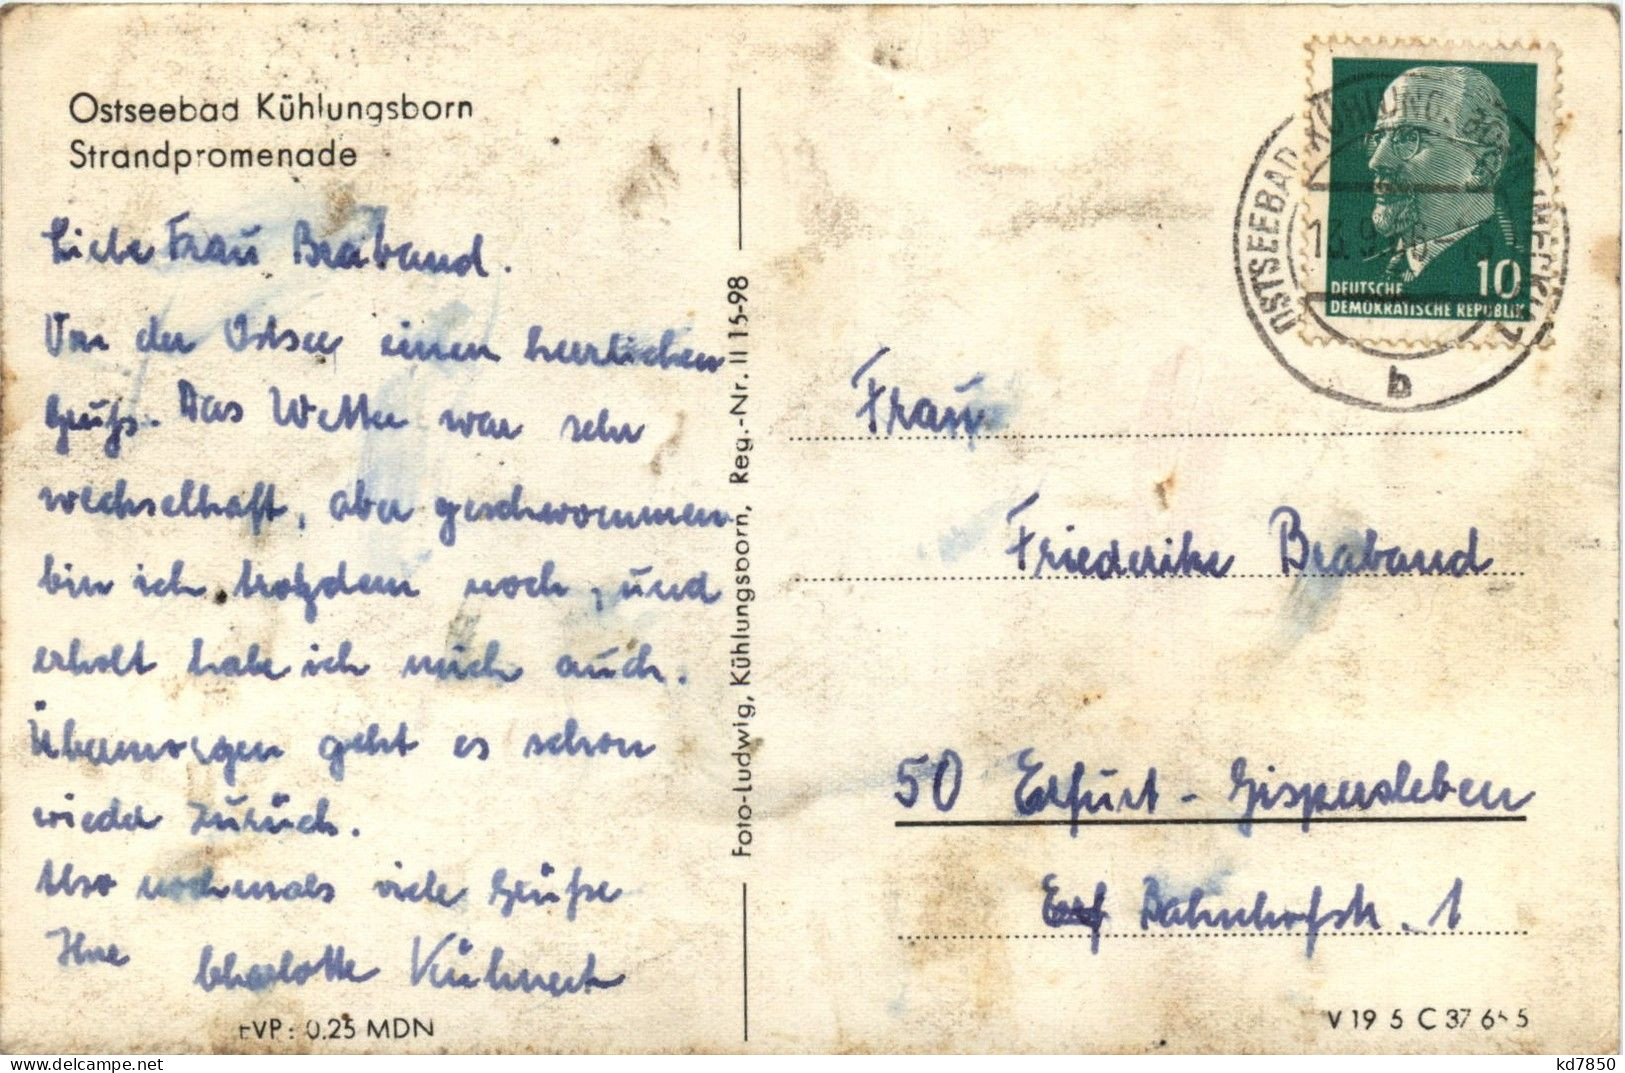 Ostseebad Kühlungsborn
Strandpromenade
Liebe Frau Braband.
Von der Ostsee einen herrlichen
Gruß. Das Wetter war sehr
wechselhaft, aber geschwommen
bin ich trotzdem noch, und
erholt habe ich mich auch.
Übermorgen geht es schon
wieder zurück.
Also nochmals viele Grüße
Ihre Charlotte Kühnert
EVP: 0.25 MDN
Foto-Ludwig, Kühlungsborn, Reg.-Nr. II 15-98
OSTSEEBAD KÜHLUNGSBORN (MECKL)
13.9.
b
10
DEUTSCHE
DEMOKRATISCHE REPUBLIK
Frau
Friederike Braband
50 Erfurt - Gispersleben
Bahnhofstr. 1
V 19 5 C 37
kd7850